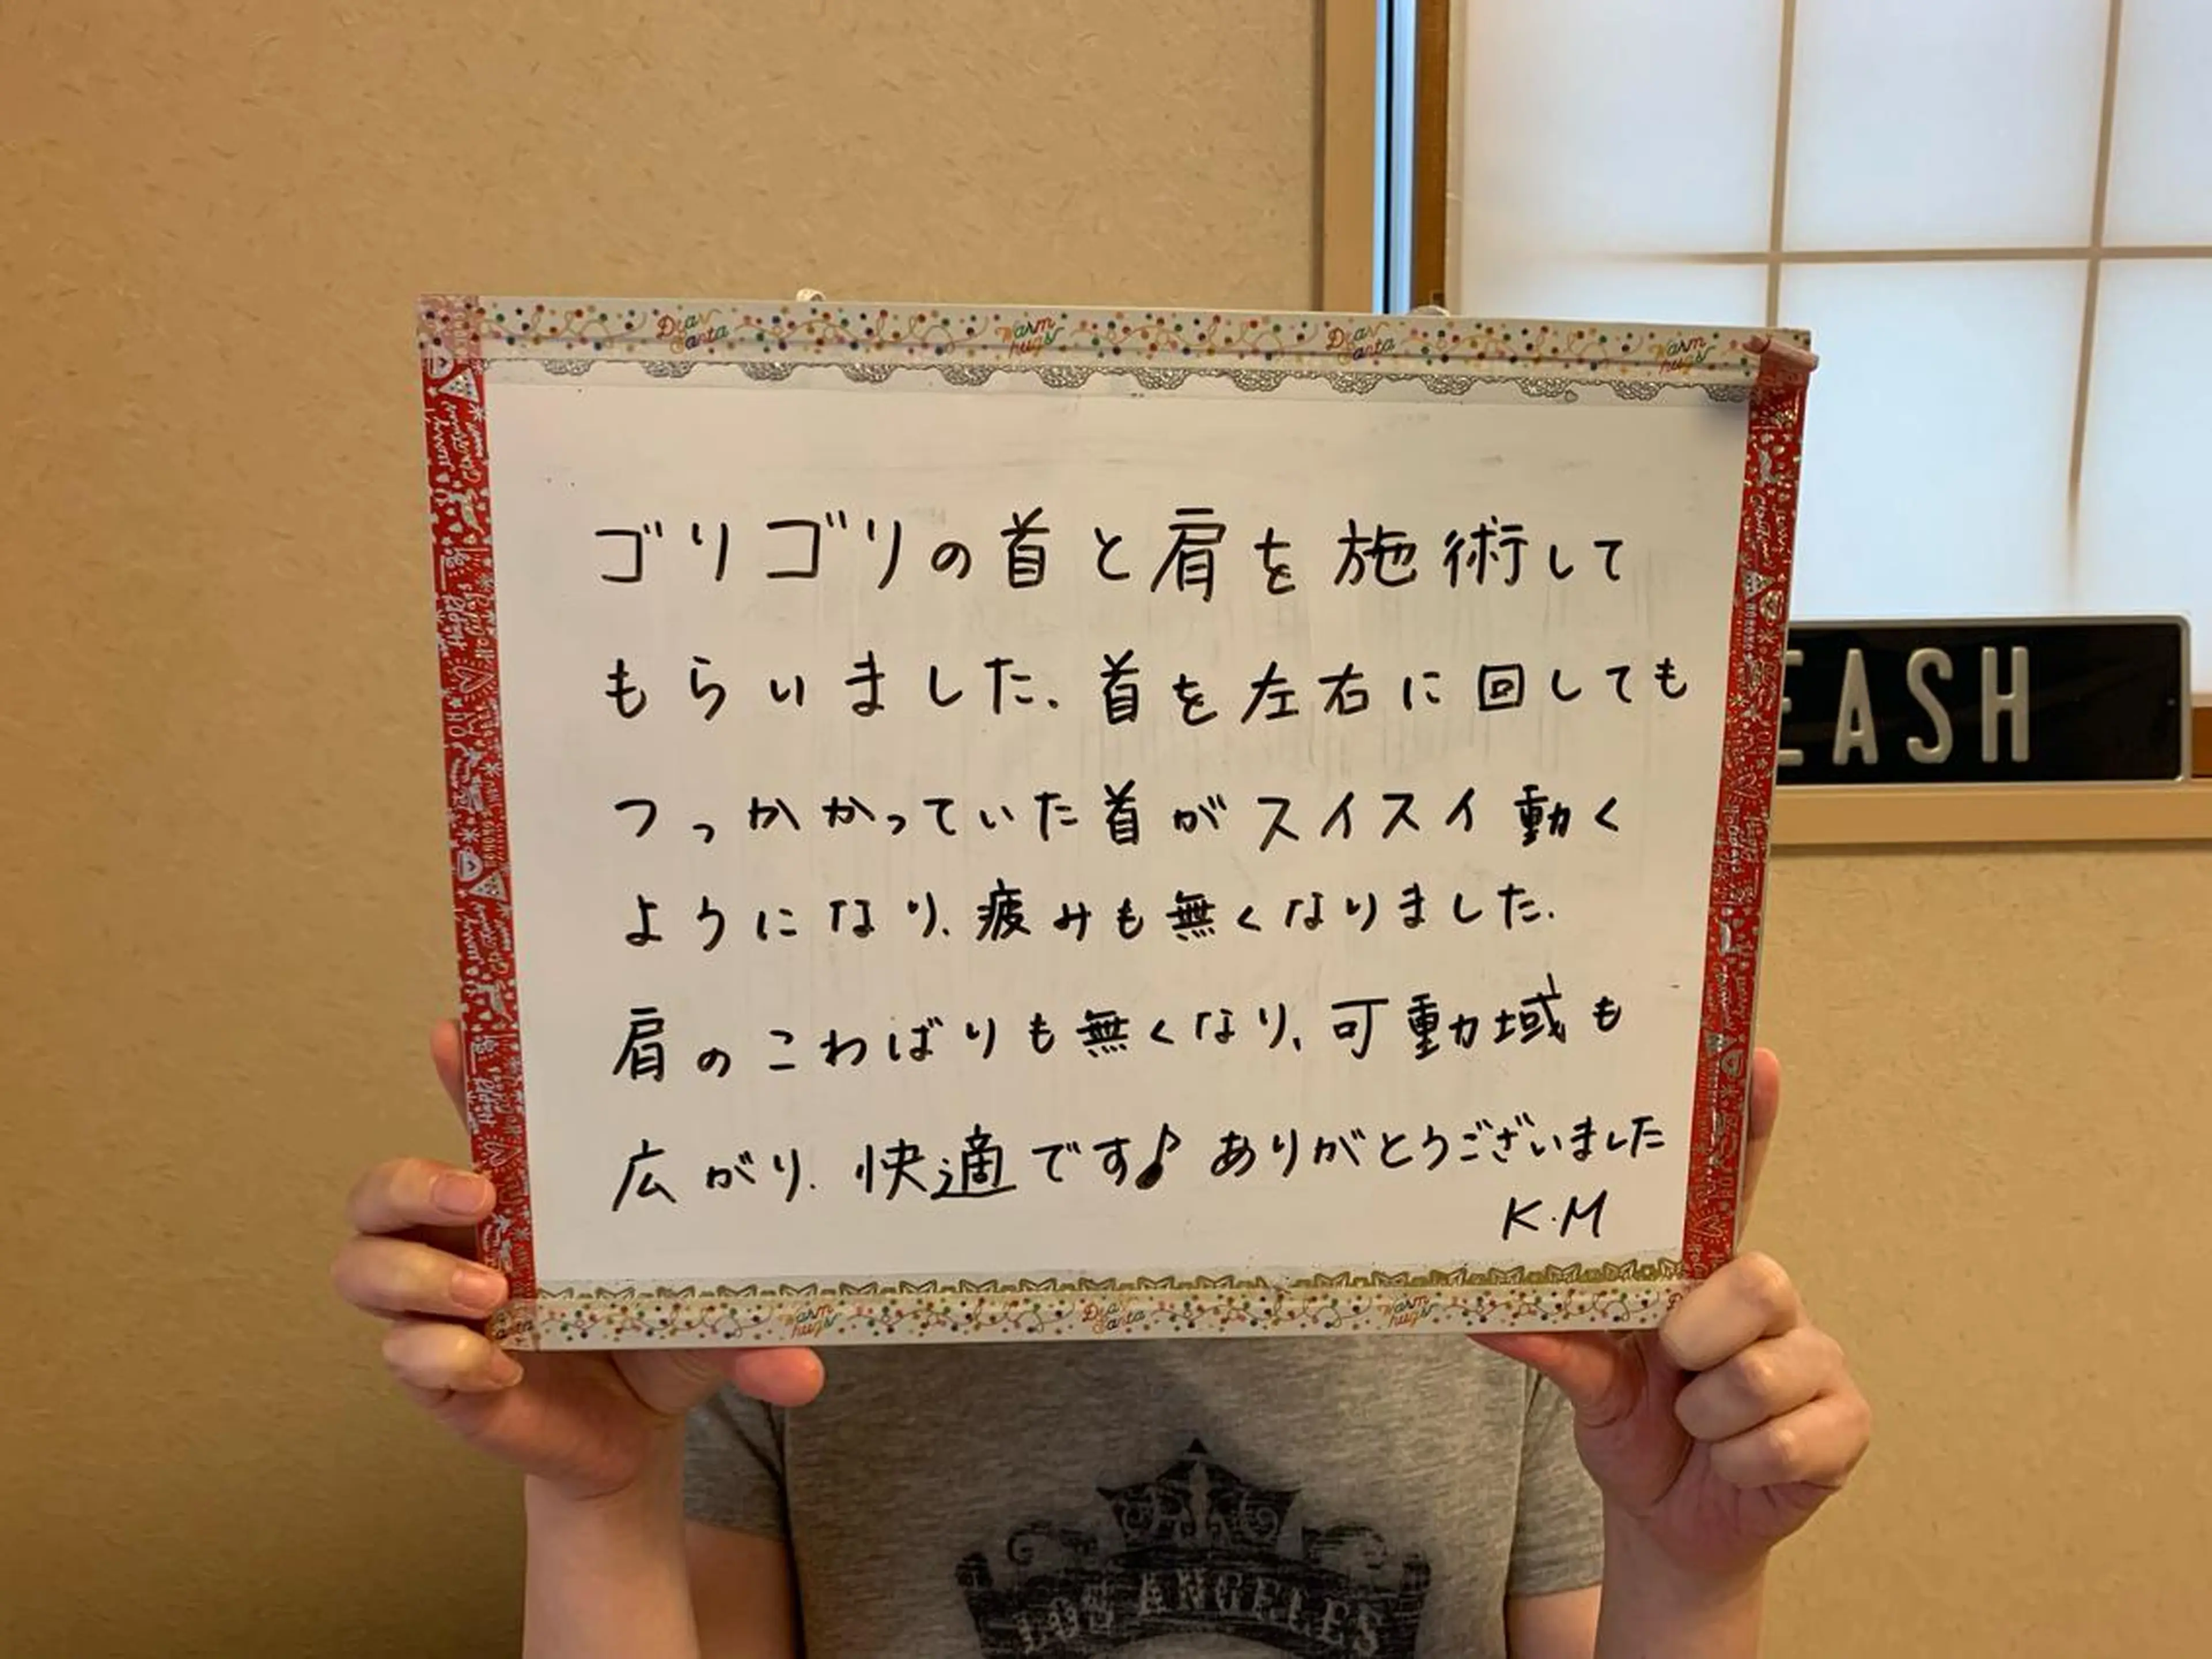 ゴリゴリの首と肩を施術して
もらいました、首を左右に回しても
つっかかっていた首がスイスイ動く
ようになり、疲みも無くなりました.
肩のこわばりも無くなり、可動域も
広がり、快適です♪ ありがとうございました
K.M
EASH
LOS ANGELES
Dear Santa
Warm hugs
Dear Santa
Warm hugs
Warm hugs
Dear Santa
Warm hugs